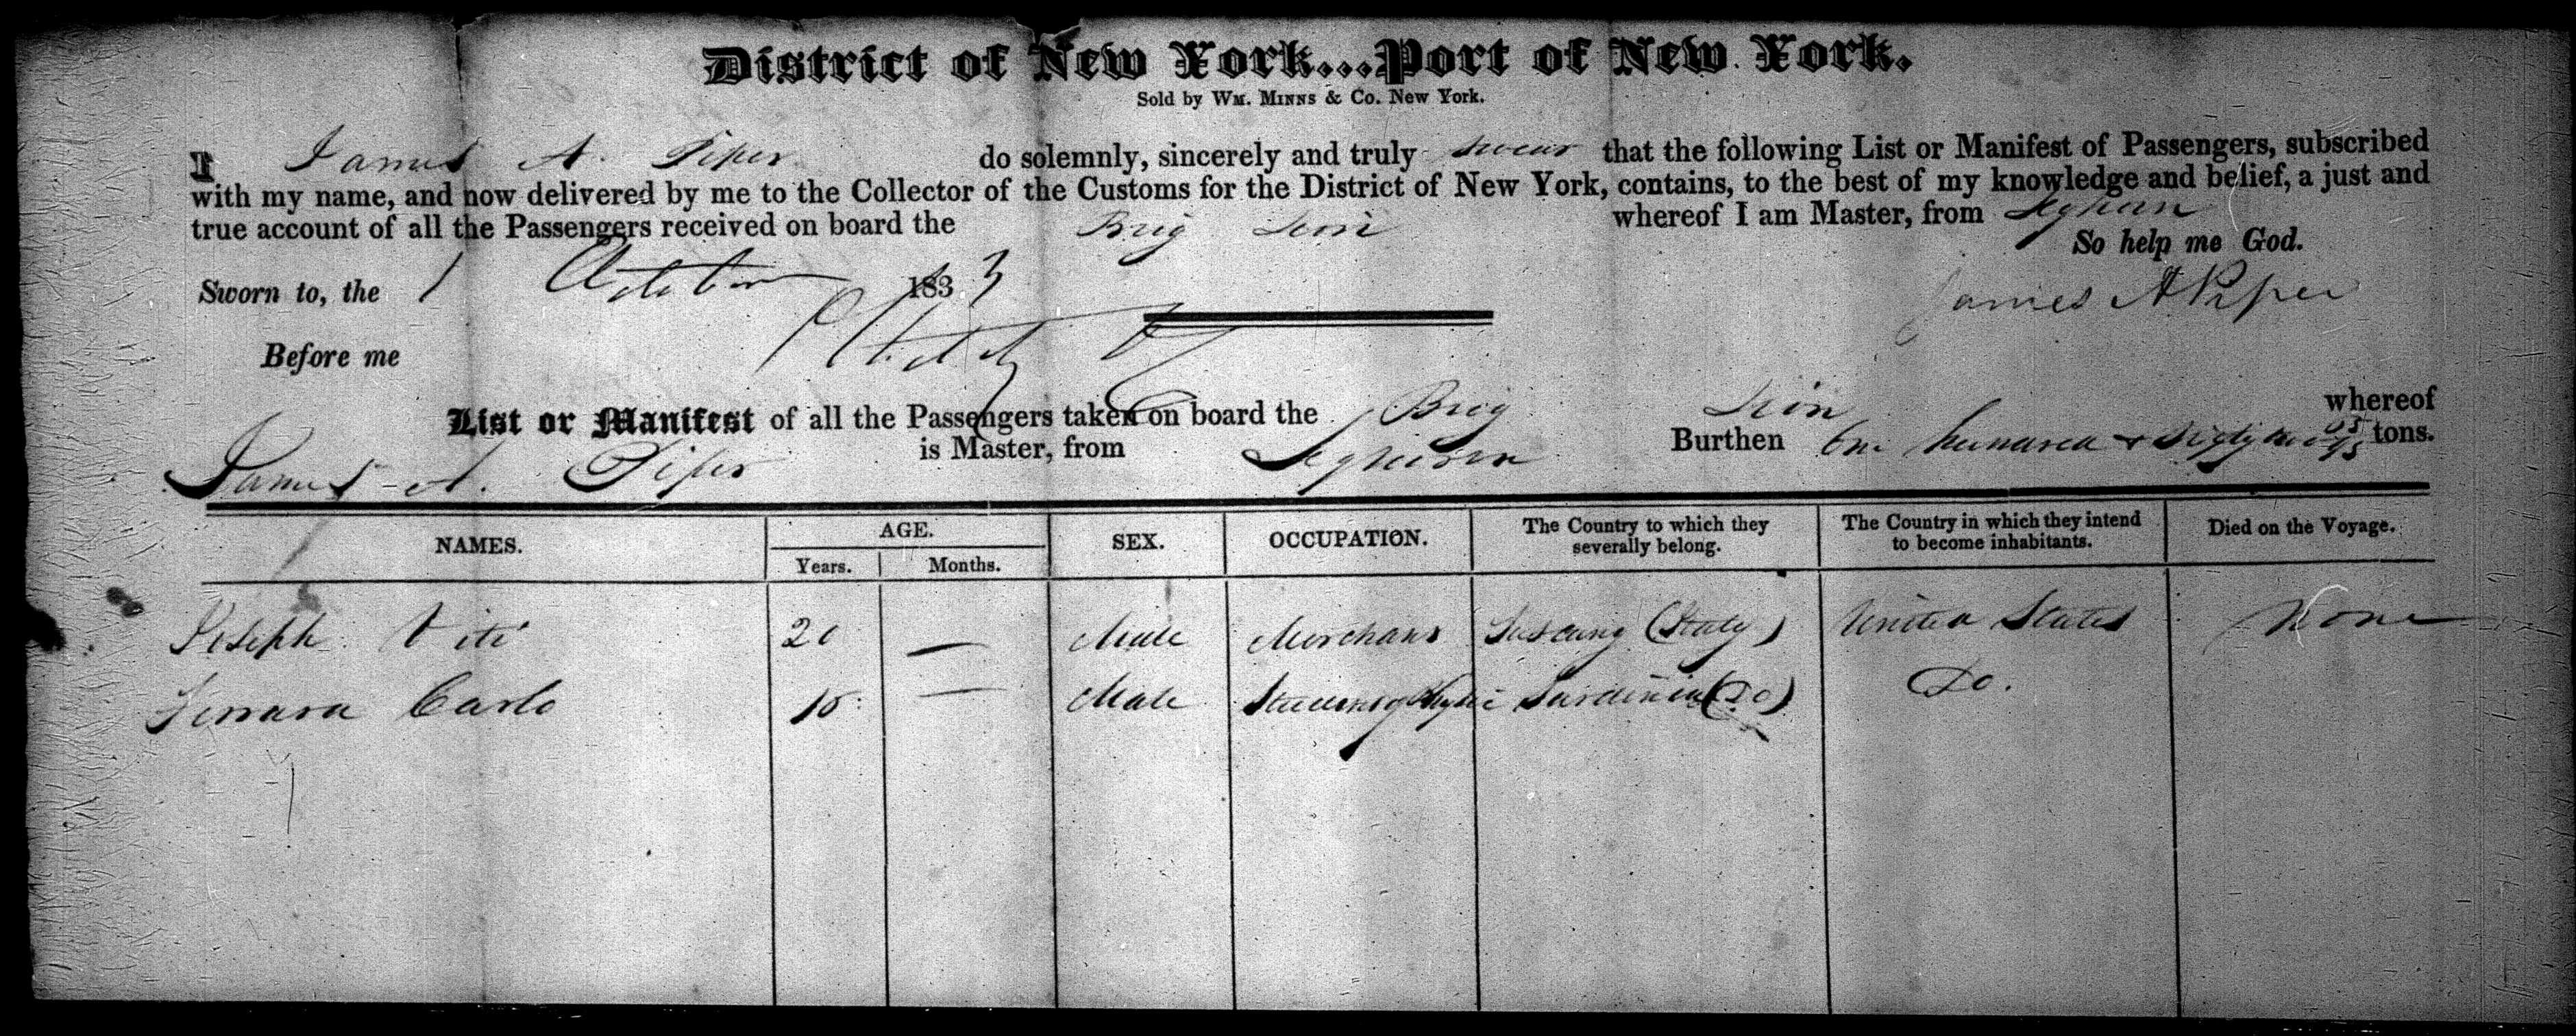 District of New York...Port of New York.
Sold by WM. MINNS & Co. New York.
I James A. Piper do solemnly, sincerely and truly swear that the following List or Manifest of Passengers, subscribed
with my name, and now delivered by me to the Collector of the Customs for the District of New York, contains, to the best of my knowledge and belief, a just and
true account of all the Passengers received on board the Brig whereof I am Master, from Leghorn
So help me God.
Sworn to, the 1 October 1833
James A Piper
Before me
List or Manifest of all the Passengers taken on board the Brig whereof
James A. Piper is Master, from Leghorn Burthen One hundred & Sixty tons.
NAMES. AGE. SEX. OCCUPATION. The Country to which they severally belong. The Country in which they intend to become inhabitants. Died on the Voyage.
Years. Months.
Joseph Viti 20 — Male Merchant Tuscany (Italy) United States None
Ferrara Carlo — Male Student of Physic Sardinia (Do) Do.